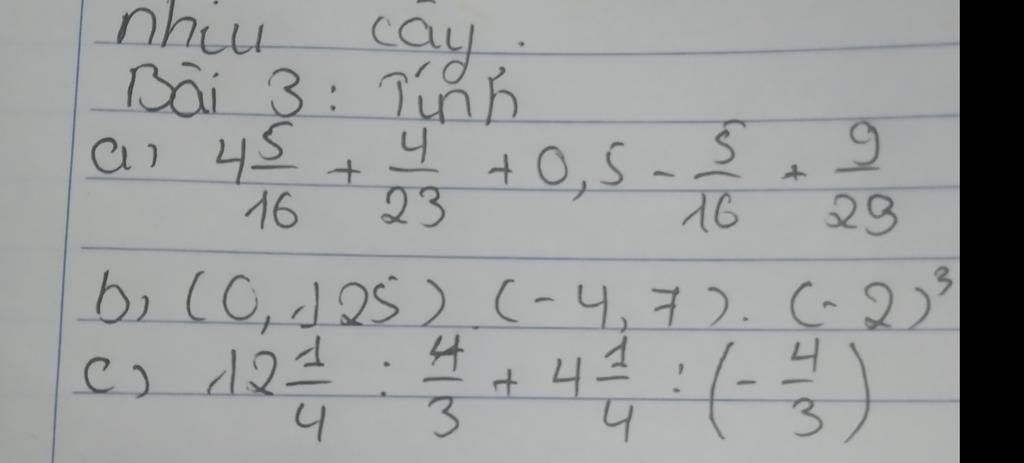 nhiu cây.
Bài 3: Tính
a) 4 5/16 + 4/23 + 0,5 - 5/16 + 9/29
b) (0,125).(-4,7).(-2)³
c) 12 1/4 : 4/3 + 4 1/4 : (-4/3)